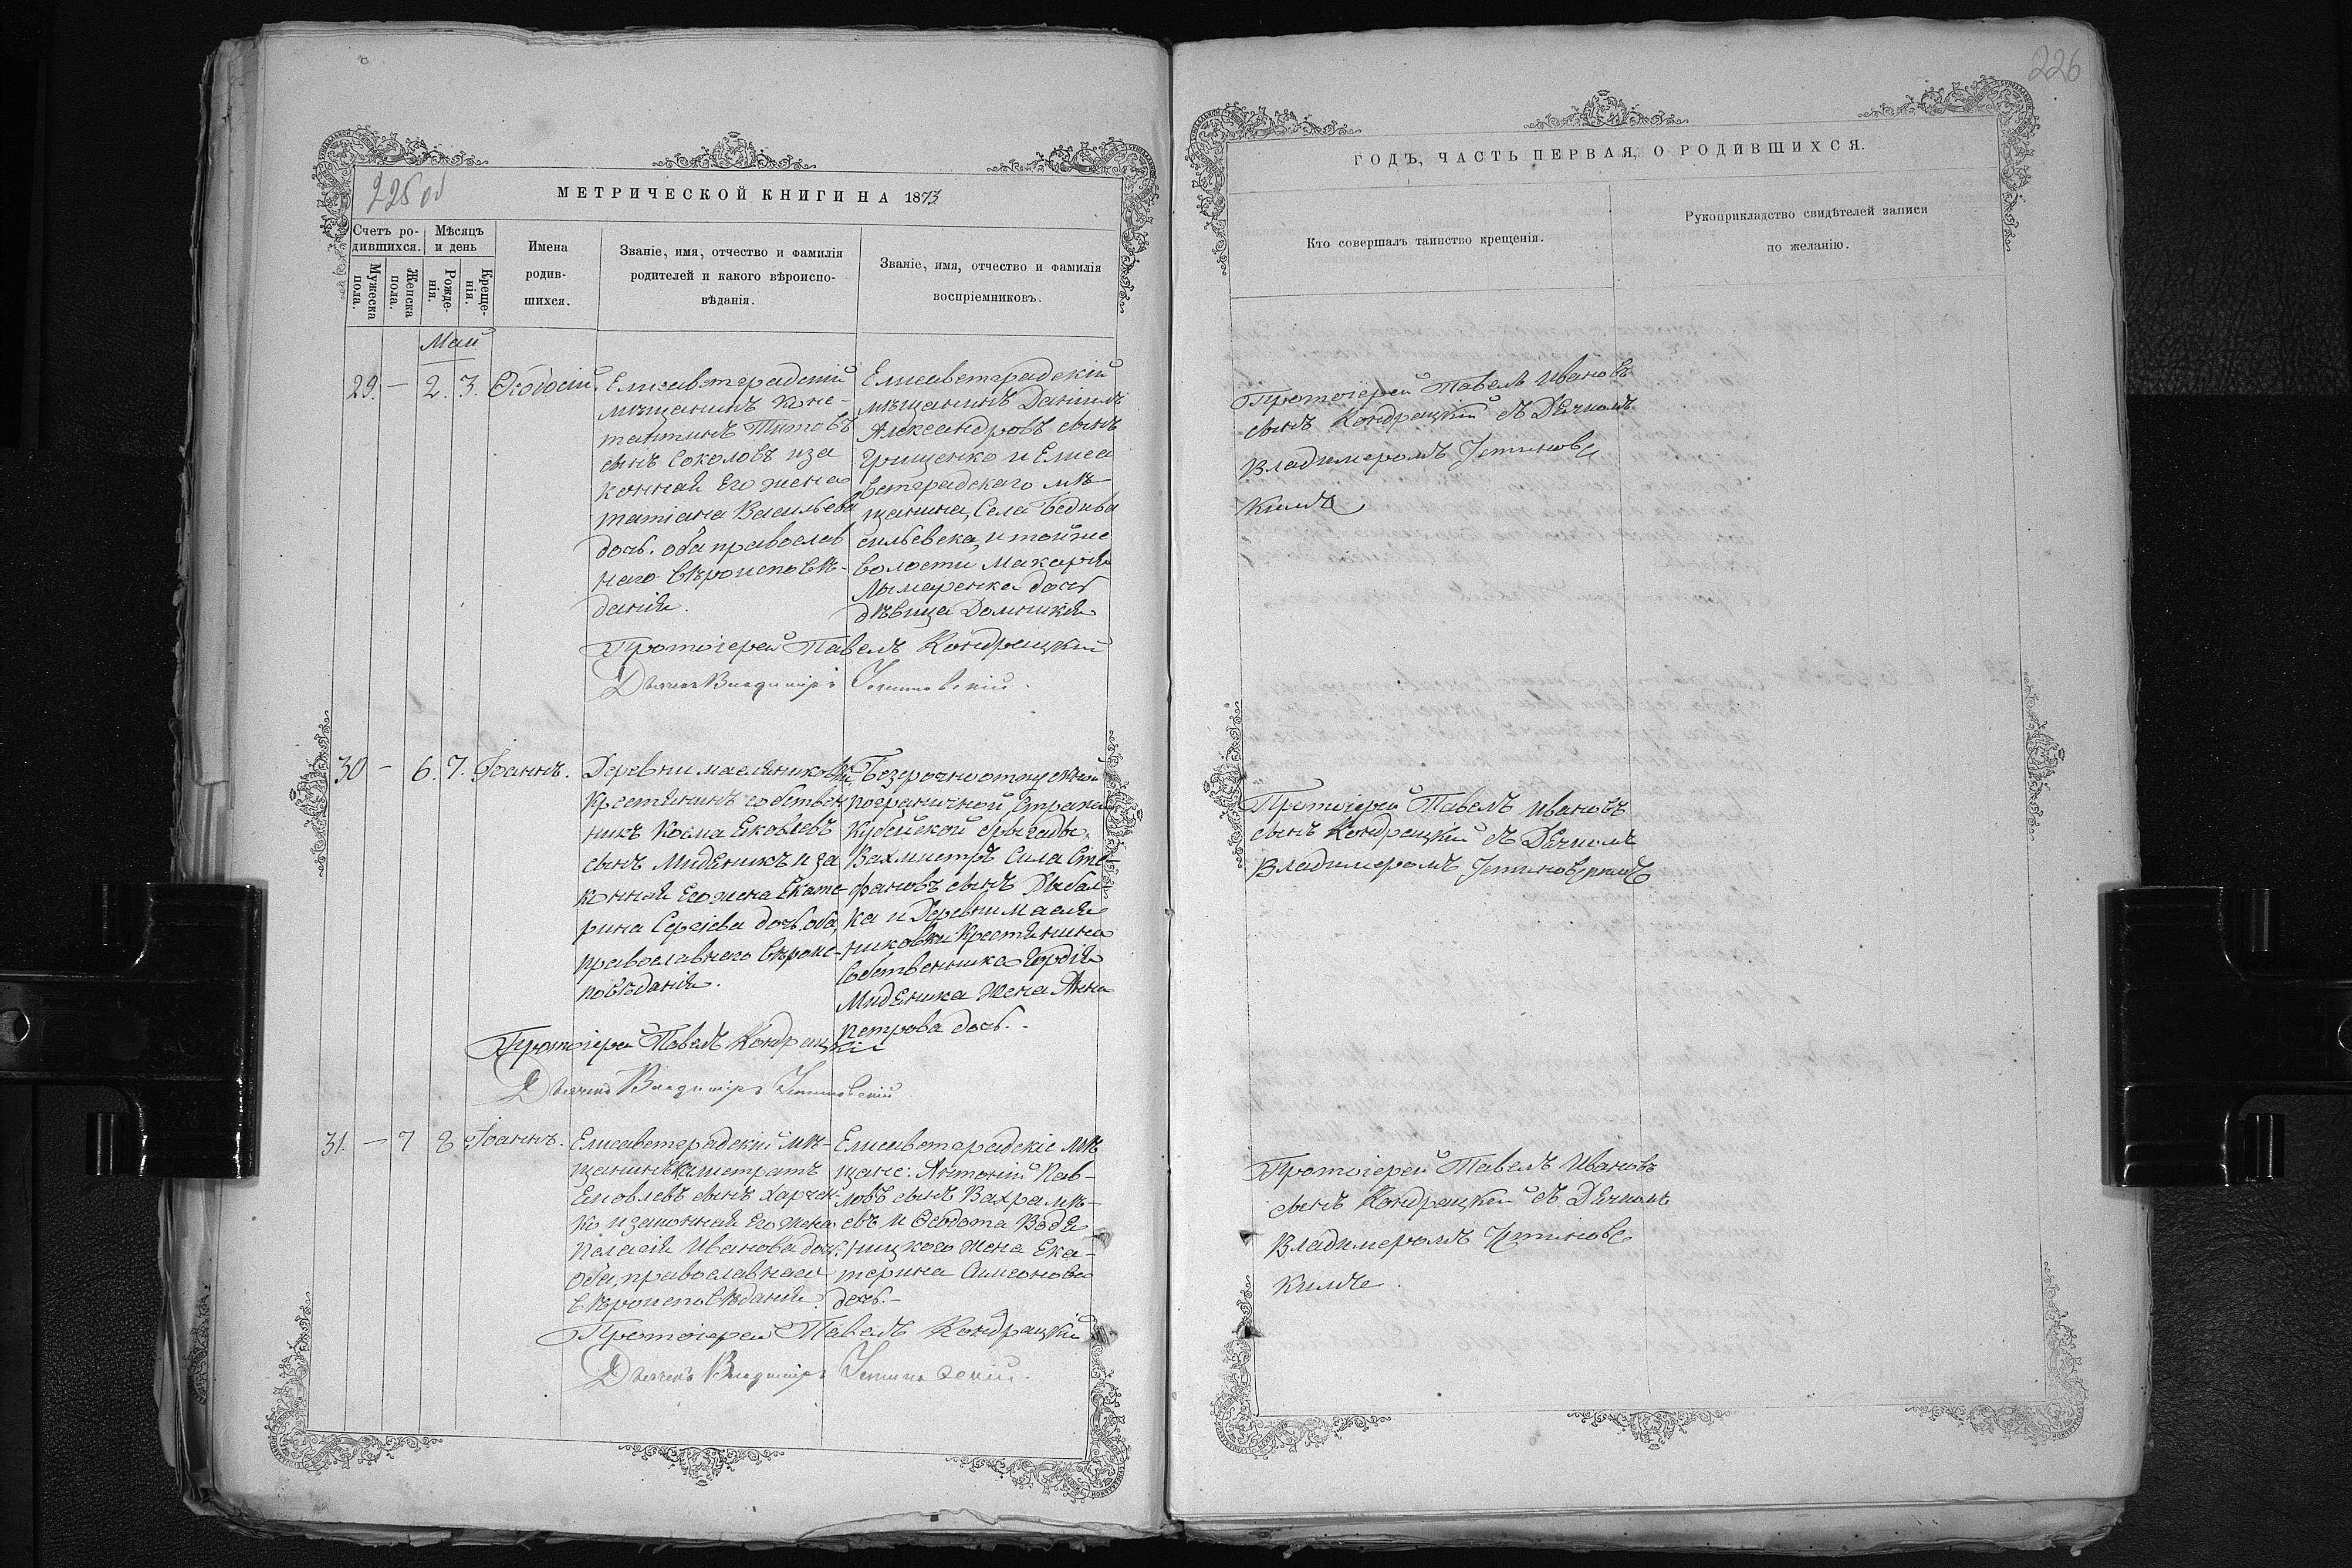 225 об
МЕТРИЧЕСКОЙ КНИГИ НА 1873
Счетъ ро-
дившихся.
Мѣсяцъ
и день
Мужеска
пола.
Женска
пола.
Рожде-
нія.
Креще-
нія.
Имена
родив-
шихся.
Званіе, имя, отчество и фамилія
родителей и какого вѣроиспо-
вѣданія.
Званіе, имя, отчество и фамилія
воспріемниковъ.
Май
29. – 2. 3. Ѳеодосій.
Елисаветградскій
мѣщанинъ Конс-
тантинъ Титовъ
сынъ Соколовъ иза
конная Его жена
татіана Васильева
дочь. оба православ
наго вѣроисповѣ-
данія.
Елисаветградскій
мѣщанинъ Даніилъ
Александровъ сынъ
Грищенко и Елиса
ветградскаго мѣ-
щанина, Села
и тойже
волости Макарія
Лымаренка дочь
дѣвица Домникія
Протоіерей Павелъ Кондрацкій
Дьячекъ Владиміръ Устиновскій.
30 – 6. 7. Іоаннъ.
Деревни масляниковки
Крестянинъ собствен
никъ Косма Яковлевъ
сынъ Мидяникъ и за
конная Его жена Екате
рина Сергіева дочь. оба
православнаго вѣроис-
повѣданія.
Безсрочноотпускной
пограничной Стражи
бригады,
Вахмистръ Сила Сте-
фановъ сынъ Дыбал
ка и Деревни Масля
никовки Крестянина
Собственника Гордія
Мидяника жена Анна
Петрова дочь.-
Протоіерей Павелъ Кондрацкій
Дьячекъ Владиміръ Устиновскій
31. – 7 8 Іоаннъ.
Елисаветградскій мѣ-
щанинъ Калистратъ
Яковлевъ сынъ Харчен-
ко и законная Его жена
Пелагія Иванова дочь.
Оба, православнаго
вѣроисповѣданія.
Елисаветградскіе мѣ
щане: Антоній Пав-
ловъ сынъ Вахрамѣ-
евъ и Ѳеодота Водя
ницкого жена Ека-
терина Симеонова
дочь.-
Протоіерей Павелъ Кондрацкій
Дьячекъ Владиміръ Устиновскій.
226
ГОДЪ, ЧАСТЬ ПЕРВАЯ, О РОДИВШИХСЯ.
Кто совершалъ таинство крещенія.
Рукоприкладство свидѣтелей записи
по желанію.
Протоіерей Павелъ Ивановъ
сынъ Кондрацкій съ Дячкомъ
Владимеромъ Устиновс
кимъ
Протоіерей Павелъ Ивановъ
сынъ Кондрацкій съ Дячкомъ
Владимеромъ Устиновскимъ
Протоіерей Павелъ Ивановъ
сынъ Кондрацкій съ Дячкомъ
Владимеромъ Устиновс
кимъ.